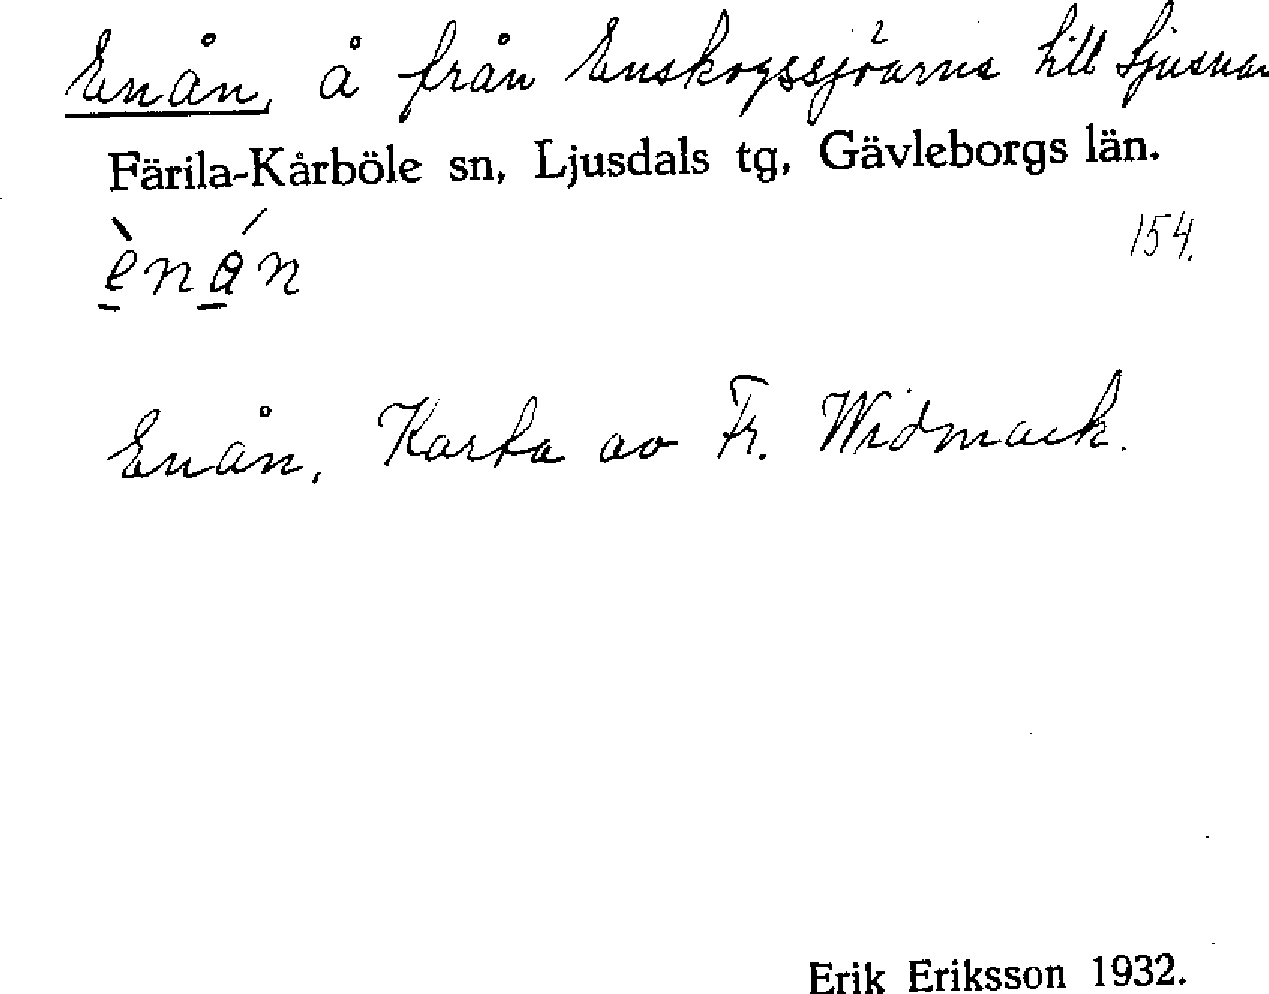 Enån, å från Enskogssjöarna till Ljusnan
Färila-Kårböle sn, Ljusdals tg, Gävleborgs län.
154.
Enån, Karta av Fr. Widmark.
Erik Eriksson 1932.